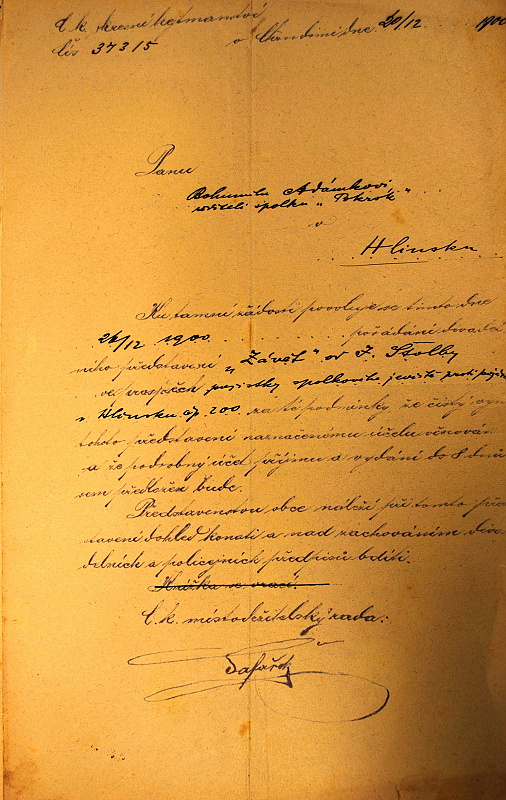 C. k. okresní hejtmanství
čís 37315 v Chrudimi dne 20/12 1900
Panu
Bohumilu Adámkovi
řediteli spolku „Pokrok“
v
Hlinsku
Ku tamní žádosti povoluje se tímto dne
26/12 1900 pořádání divadel
ního představení „Závěť“ od J. Štolby
ve prospěch pojistky spolkového jeviště proti
v Hlinsku čp. 200. za té podmínky že čistý výn
tohoto představení naznačenému účelu věnován
a že podrobný účet příjmu a vydání do 8 dnů
sem předložen bude.
Představenstvu obce náleží při tomto před
stavení dohled konati a nad zachováním diva
delních a policejních předpisů bdíti.
Knížka se vrací.
C. k. místodržitelský rada:
Šafařík